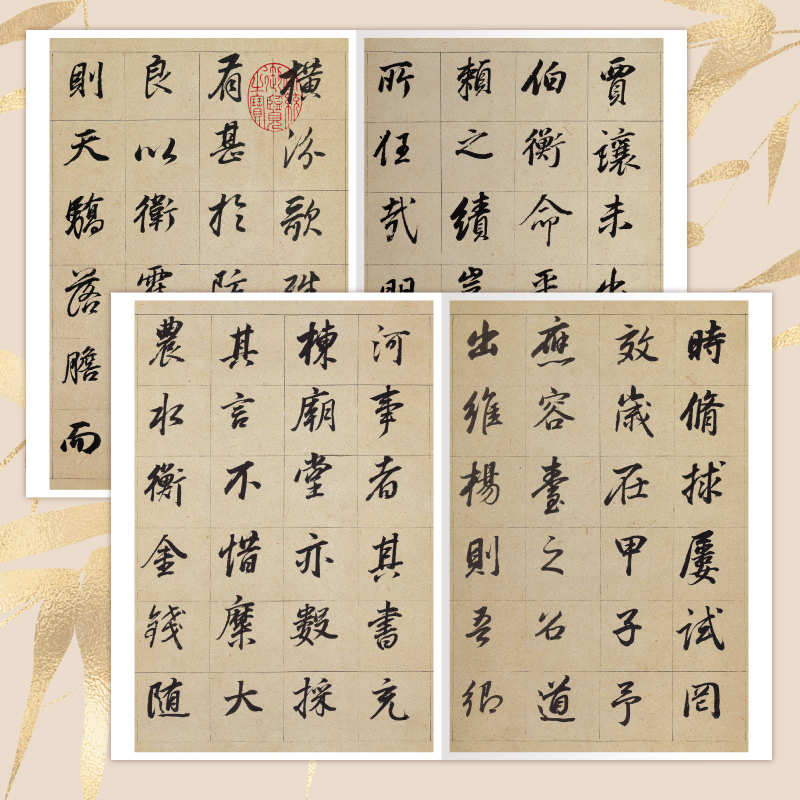 賈讓未
伯衡命
賴之績
所任哉
橫汾歌
有甚於
良以衛
則天驕落膽而
時脩捄屢試罔
效歲在甲子予
應容臺之召道
出維楊則吾卿
河事者其書充
棟廟堂亦數採
其言不惜糜大
農水衡金錢随